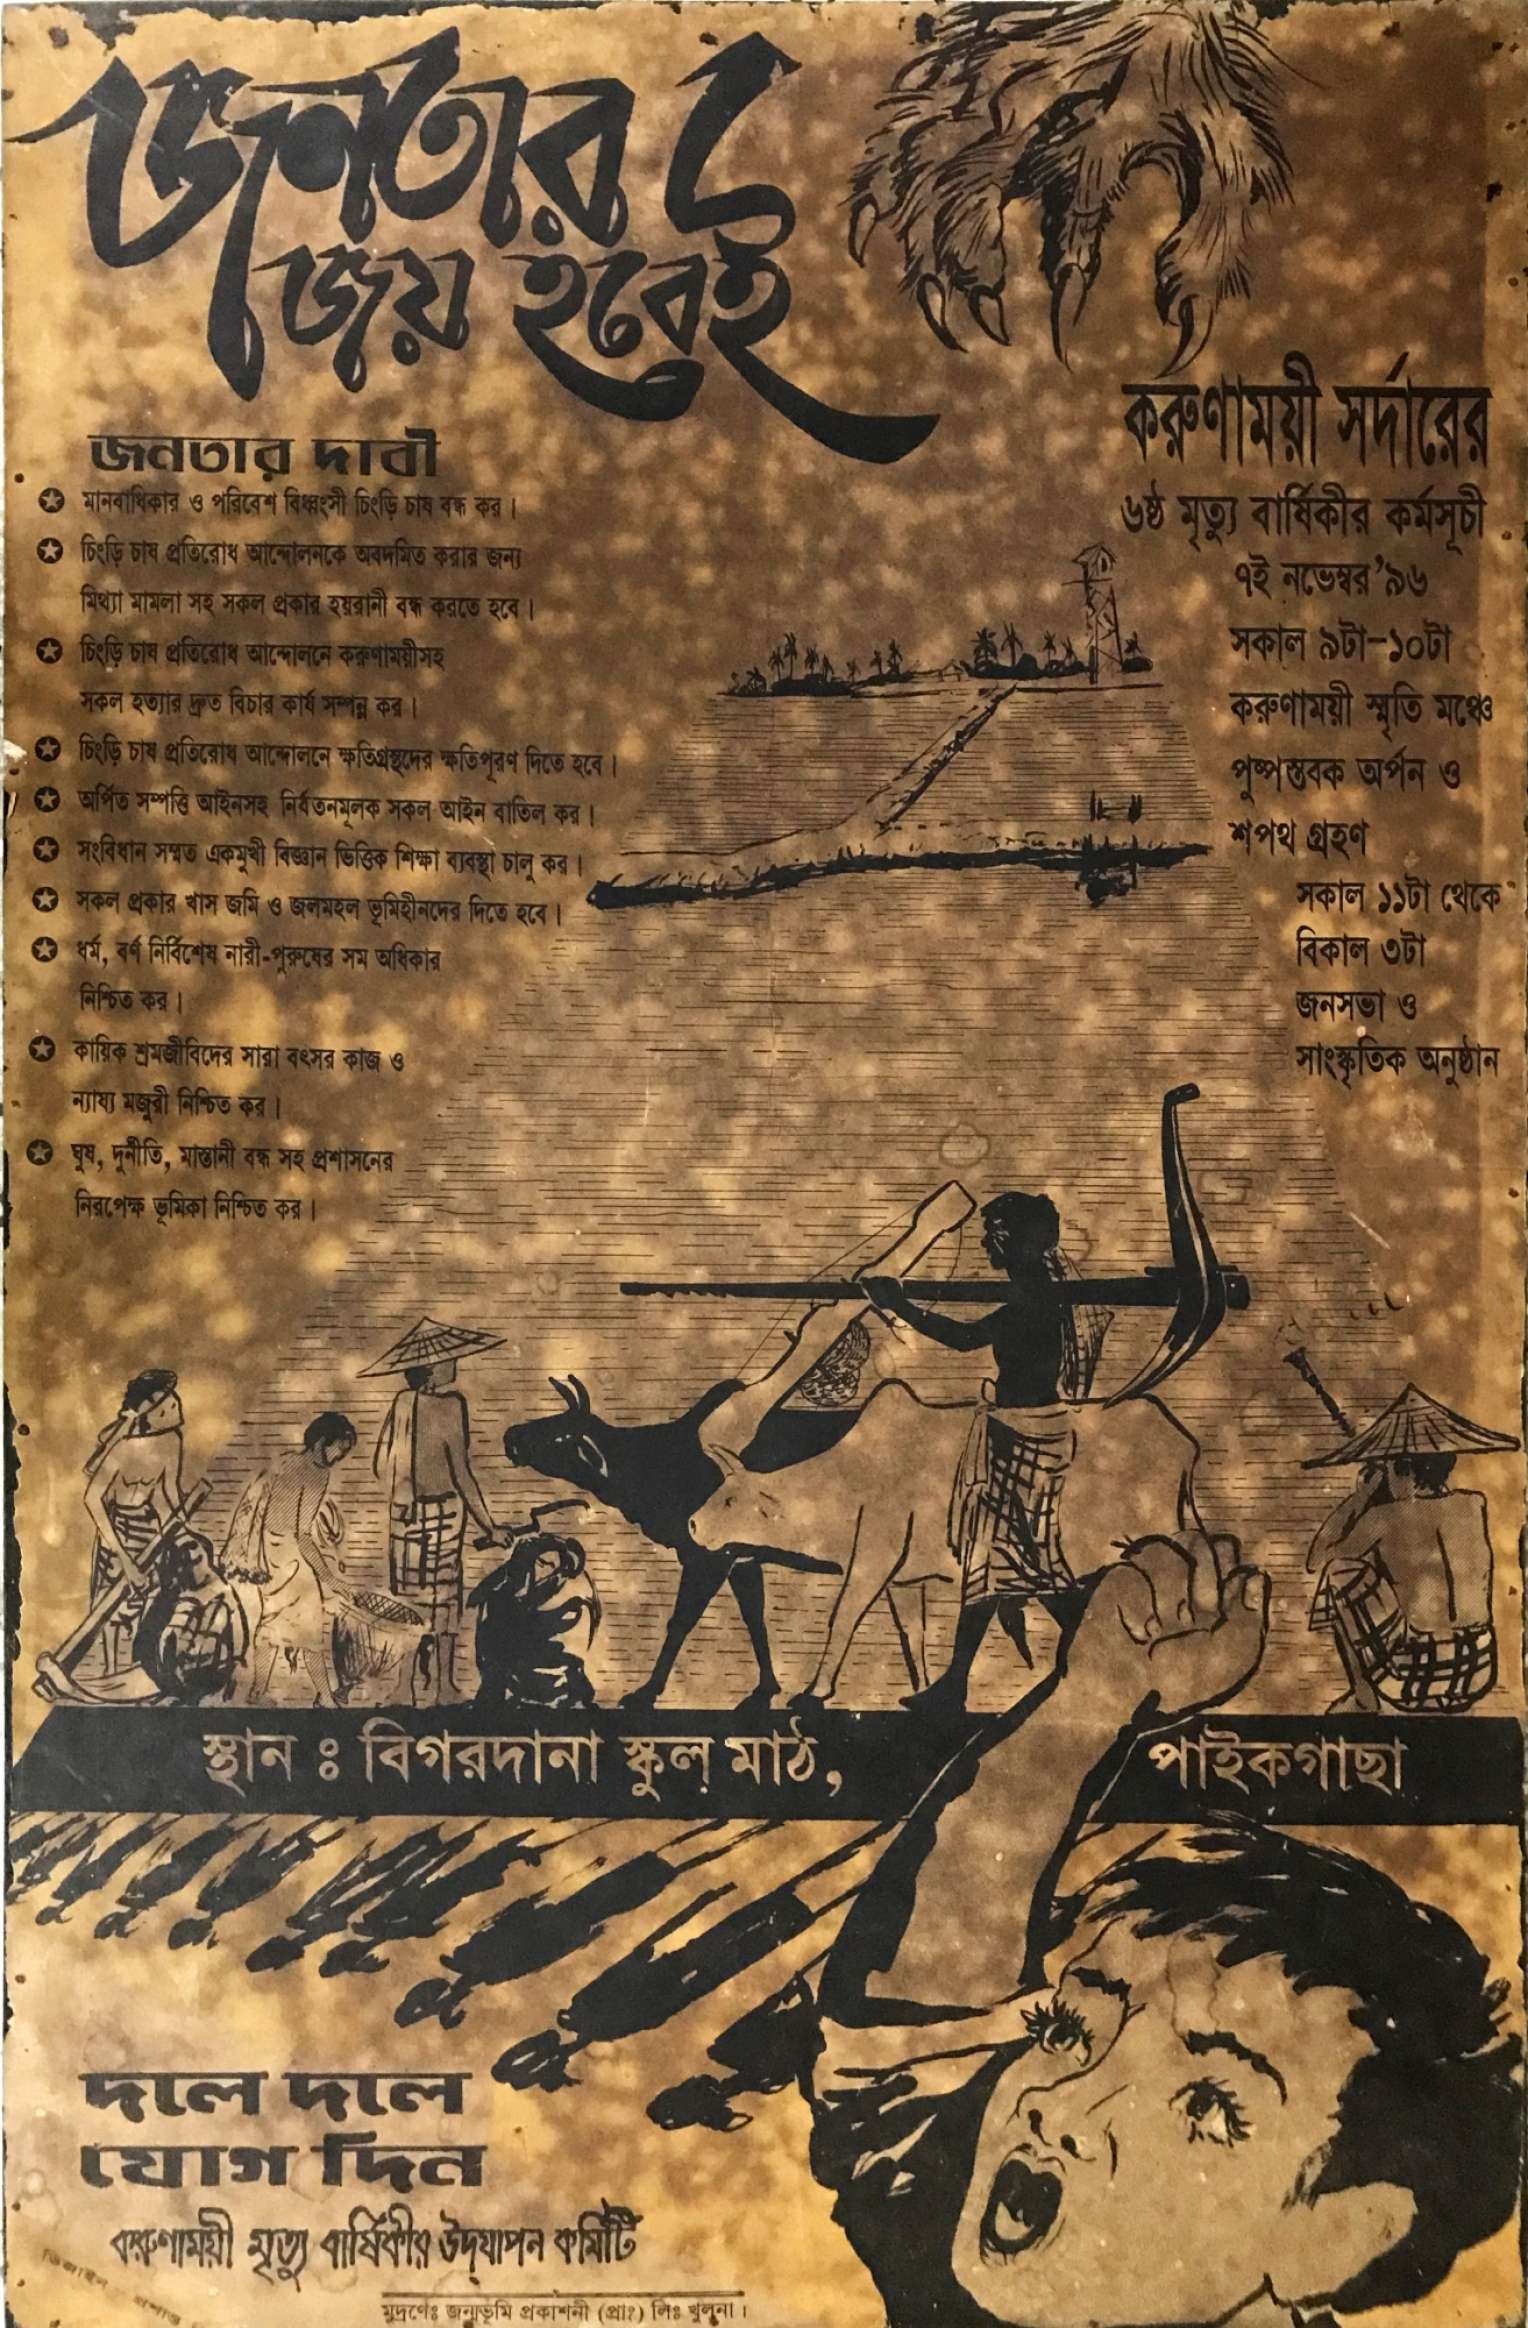 জনতার
জয় হবেই
জনতার দাবী
মানবাধিকার ও পরিবেশ বিধ্বংসী চিংড়ি চাষ বন্ধ কর।
চিংড়ি চাষ প্রতিরোধ আন্দোলনকে অবদমিত করার জন্য
মিথ্যা মামলা সহ সকল প্রকার হয়রানী বন্ধ করতে হবে।
চিংড়ি চাষ প্রতিরোধ আন্দোলনে করুণাময়ীসহ
সকল হত্যার দ্রুত বিচার কার্য সম্পন্ন কর।
চিংড়ি চাষ প্রতিরোধ আন্দোলনে ক্ষতিগ্রস্থদের ক্ষতিপূরণ দিতে হবে।
অর্পিত সম্পত্তি আইনসহ নির্যতনমূলক সকল আইন বাতিল কর।
সংবিধান সম্মত একমুখী বিজ্ঞান ভিত্তিক শিক্ষা ব্যবস্থা চালু কর।
সকল প্রকার খাস জমি ও জলমহল ভূমিহীনদের দিতে হবে।
ধর্ম, বর্ণ নির্বিশেষ নারী-পুরুষের সম অধিকার
নিশ্চিত কর।
কায়িক শ্রমজীবিদের সারা বৎসর কাজ ও
ন্যায্য মজুরী নিশ্চিত কর।
ঘুষ, দুর্নীতি, মাস্তানী বন্ধ সহ প্রশাসনের
নিরপেক্ষ ভূমিকা নিশ্চিত কর।
করুণাময়ী সর্দারের
৬ষ্ঠ মৃত্যু বার্ষিকীর কর্মসূচী
৭ই নভেম্বর '৯৬
সকাল ৯টা-১০টা
করুণাময়ী স্মৃতি মঞ্চে
পুষ্পস্তবক অর্পন ও
শপথ গ্রহণ
সকাল ১১টা থেকে
বিকাল ৩টা
জনসভা ও
সাংস্কৃতিক অনুষ্ঠান
স্থান ঃ বিগরদানা স্কুল মাঠ, পাইকগাছা
দলে দলে
যোগ দিন
করুণাময়ী মৃত্যু বার্ষিকীর উদ্‌যাপন কমিটি
মুদ্রণেঃ জন্মভূমি প্রকাশনী (প্রাঃ) লিঃ খুলনা।